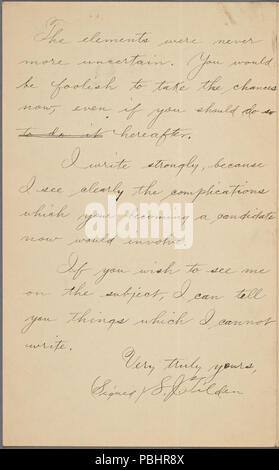 The elements were never
more uncertain. You would
be foolish to take the chances
now, even if you should do so
to do it hereafter.
I write strongly, because
I see clearly the complications
which your becoming a candidate
now would involve.
If you wish to see me
on the subject, I can tell
you things which I cannot
write.
Very truly yours,
Signed S. J. Tilden
alamy
alamy
Image ID: PBHR8X
www.alamy.com